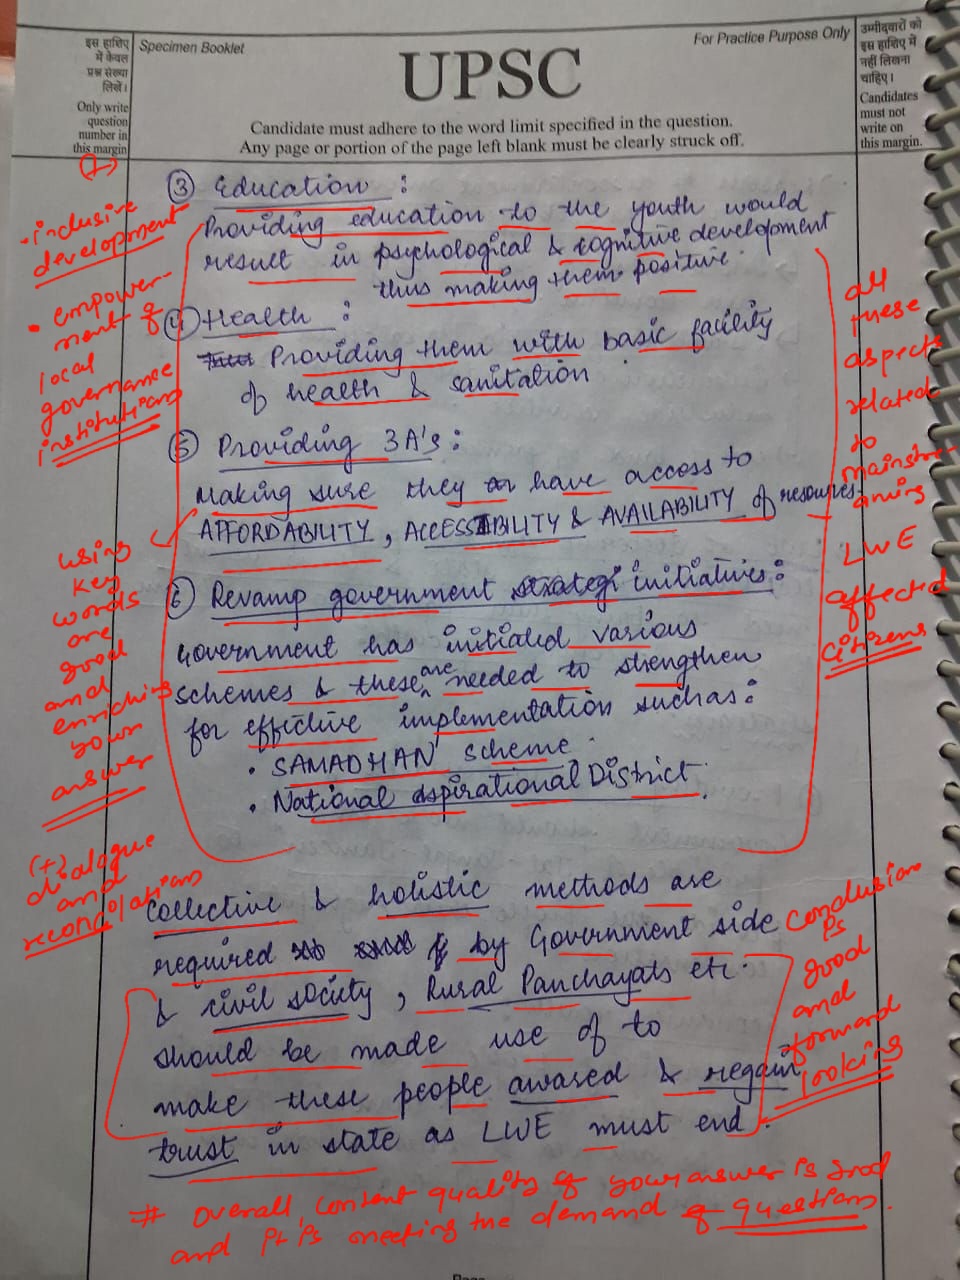 इस हाशिए
में केवल
प्रश्न संख्या
लिखें।
Only write
question
number in
this margin
Specimen Booklet
For Practice Purpose Only
UPSC
Candidate must adhere to the word limit specified in the question.
Any page or portion of the page left blank must be clearly struck off.
उम्मीदवारों को
इस हाशिए में
नहीं लिखना
चाहिए।
Candidates
must not
write on
this margin.
③ Education :
Providing education to the youth would
result in psychological & cognitive development
thus making them positive.
④ Health :
Providing them with basic facility
of health & sanitation
⑤ Providing 3A's :
Making sure they have access to
AFFORDABILITY, ACCESSIBILITY & AVAILABILITY of resources
⑥ Revamp government initiatives :
Government has initiated various
schemes & these are needed to strengthen
for effective implementation such as :
• SAMADHAN scheme.
• National aspirational District.
Collective & holistic methods are
required by Government side
& civil society, Rural Panchayats etc.
should be made use of to
make these people awared & regain
trust in state as LWE must end.
(+)
• inclusive
development
• empower-
ment of
local
governance
institutions
using
key
words
are
good
and
enriching
your
answer
(+)
dialogue
and
all
these
aspects
related
to
mainstre-
aming
LWE
affected
citizens
Conclusion
is
good
and
forward
looking
# Overall, content quality of your answer is good
and it is meeting the demand of questions.